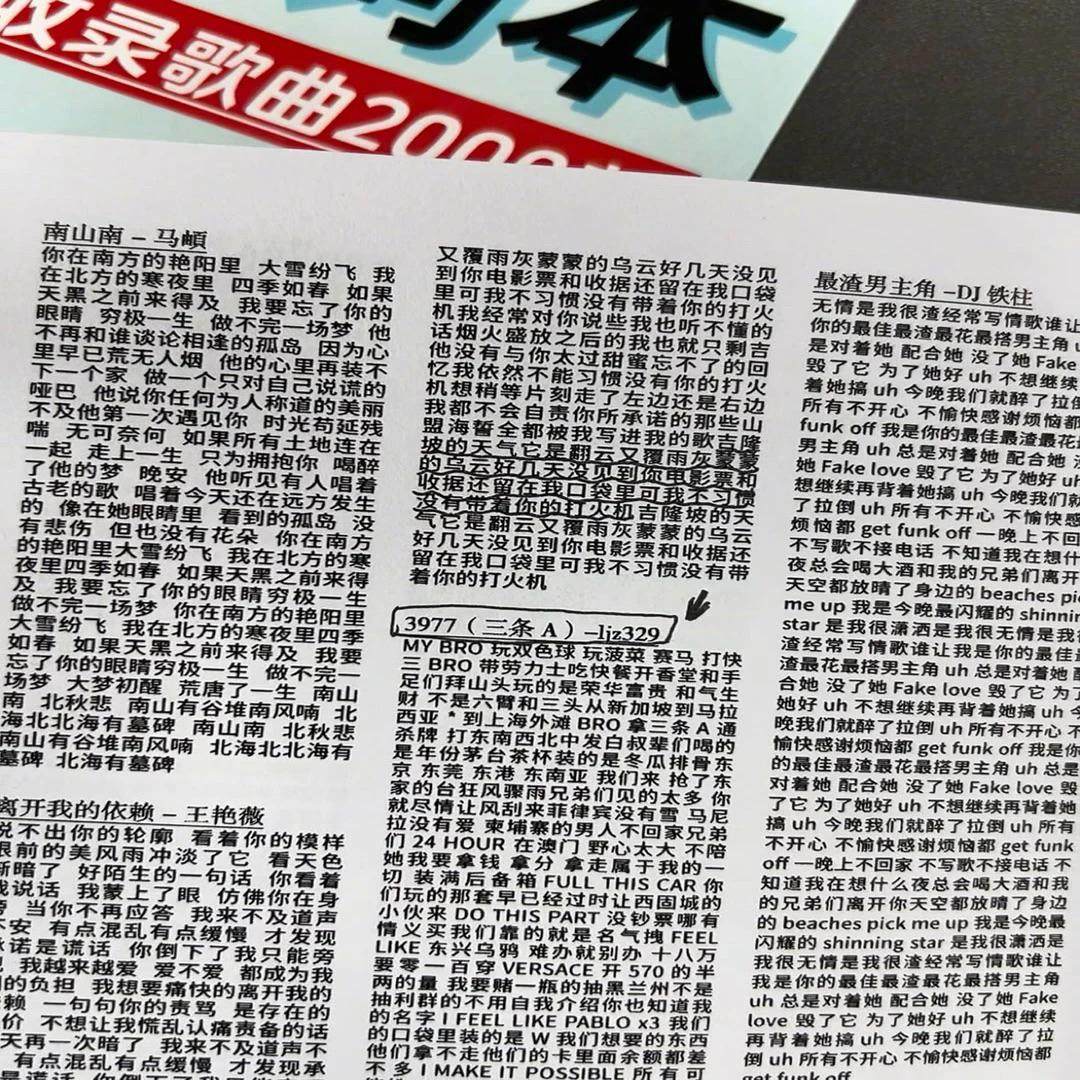 收录歌曲2000
本
南山南 – 马頔
你在南方的艳阳里 大雪纷飞 我
在北方的寒夜里 四季如春 如果
天黑之前来得及 我要忘了你的
眼睛 穷极一生 做不完一场梦 他
不再和谁谈论相逢的孤岛 因为心
里早已荒无人烟 他的心里再装不
下一个家 做一个只对自己说谎的
哑巴 他说你任何为人称道的美丽
不及他第一次遇见你 时光苟延残
喘 无可奈何 如果所有土地连在
一起 走上一生 只为拥抱你 喝醉
了他的梦 晚安 他听见有人唱着
古老的歌 唱着今天还在远方发生
的 像在她眼睛里 看到的孤岛 没
有悲伤 但也没有花朵 你在南方
的艳阳里大雪纷飞 我在北方的寒
夜里四季如春 如果天黑之前来得
及 我要忘了你的眼睛穷极一生
做不完一场梦 你在南方的艳阳里
大雪纷飞 我在北方的寒夜里四季
如春 如果天黑之前来得及 我要
忘了你的眼睛穷极一生 做不完一
场梦 大梦初醒 荒唐了一生 南山
南 北秋悲 南山有谷堆南风喃 北
海北北海有墓碑 南山南 北秋悲
南山有谷堆南风喃 北海北北海有
墓碑 北海有墓碑
离开我的依赖 – 王艳薇
说不出你的轮廓 看着你的模样
眼前的美风雨冲淡了它 看天色
渐暗了 好陌生的一句话 你看着
我说话 我蒙上了眼 仿佛你在身
旁 当你不再应答 我来不及道声
不安 有点混乱有点缓慢 才发现
承诺是谎话 你倒下了我只能旁
我越来越爱 爱不爱 都成为我
的负担 我想要痛快的离开我的
依赖 一句句你的责骂 是存在的
价 不想让我慌乱认痛责备的话
天再一次暗了 我来不及道声不
有点混乱有点缓慢 才发现承
又覆雨灰蒙蒙的乌云好几天没见
到你电影票和收据还留在我口袋
里可我不习惯没有带着你的打火
机我经常对你说些我也听不懂的
话烟火盛放之后的我也就只剩吉
他没有与你太过甜蜜忘不了的回
忆我依然不能习惯没有你的打火
机想稍等片刻走了左边还是右边
我都不会自责你所承诺的那些山
盟海誓全都被我写进我的歌吉隆
坡的天气它是翻云又覆雨灰蒙蒙
的乌云好几天没见到你电影票和
收据还留在我口袋里可我不习惯
没有带着你的打火机吉隆坡的天
气它是翻云又覆雨灰蒙蒙的乌云
好几天没见到你电影票和收据还
留在我口袋里可我不习惯没有带
着你的打火机
3977（三条 A）–ljz329
MY BRO 玩双色球 玩菠菜 赛马 打快
三 BRO 带劳力士吃快餐开香堂和手
足们拜山头玩的是荣华富贵 和气生
财 不是六臂和三头从新加坡到马拉
西亚 * 到上海外滩 BRO 拿三条 A 通
杀牌 打东南西北中发白叔辈们喝的
是年份茅台茶杯装的是冬瓜排骨东
京 东莞 东港 东南亚 我们来 抢了东
家的台狂风骤雨兄弟们见的太多 你
就尽情让风刮来菲律宾没有雪 马尼
拉没有爱 柬埔寨的男人不回家兄弟
们 24 HOUR 在澳门 野心太大 不陪
她我要拿钱 拿分 拿走属于我的一
切 装满后备箱 FULL THIS CAR 你
们玩的那套早已经过时让西固城的
小伙来 DO THIS PART 没钞票哪有
情义买我们靠的就是名气拽 FEEL
LIKE 东兴乌鸦 难办就别办 十八万
要零一百穿 VERSACE 开 570 的半
两的量 我要赌一瓶的抽黑兰州不是
抽利群的不用自我介绍你也知道我
的名字 I FEEL LIKE PABLO x3 我们
的口袋里装的是 W 我们想要的东西
他们拿不走他们的卡里面余额都差
不多 I MAKE IT POSSIBLE 所有可
最渣男主角 –DJ 铁柱
无情是我很渣经常写情歌谁让
你的最佳最渣最花最搭男主角 u
是对着她 配合她 没了她 Fake
毁了它 为了她好 uh 不想继续
着她搞 uh 今晚我们就醉了拉倒
所有不开心 不愉快感谢烦恼都
funk off 我是你的最佳最渣最花
男主角 uh 总是对着她 配合她 没
她 Fake love 毁了它 为了她好 uh
想继续再背着她搞 uh 今晚我们就
了拉倒 uh 所有不开心 不愉快感
烦恼都 get funk off 一晚上不回
不写歌不接电话 不知道我在想什
夜总会喝大酒和我的兄弟们离开
天空都放晴了身边的 beaches pic
me up 我是今晚最闪耀的 shinning
star 是我很潇洒是我很无情是我很
渣经常写情歌谁让我是你的最佳最
渣最花最搭男主角 uh 总是对着她
合她 没了她 Fake love 毁了它 为了
她好 uh 不想继续再背着她搞 uh 今
晚我们就醉了拉倒 uh 所有不开心 不
愉快感谢烦恼都 get funk off 我是你
的最佳最渣最花最搭男主角 uh 总是
对着她 配合她 没了她 Fake love 毁
了它 为了她好 uh 不想继续再背着她
搞 uh 今晚我们就醉了拉倒 uh 所有
不开心 不愉快感谢烦恼都 get funk
off 一晚上不回家 不写歌不接电话 不
知道我在想什么夜总会喝大酒和我
的兄弟们离开你天空都放晴了身边
的 beaches pick me up 我是今晚最
闪耀的 shinning star 是我很潇洒是
我很无情是我很渣经常写情歌谁让
我是你的最佳最渣最花最搭男主角
uh 总是对着她 配合她 没了她 Fake
love 毁了它 为了她好 uh 不想继续
再背着她搞 uh 今晚我们就醉了拉
倒 uh 所有不开心 不愉快感谢烦恼都
get funk off